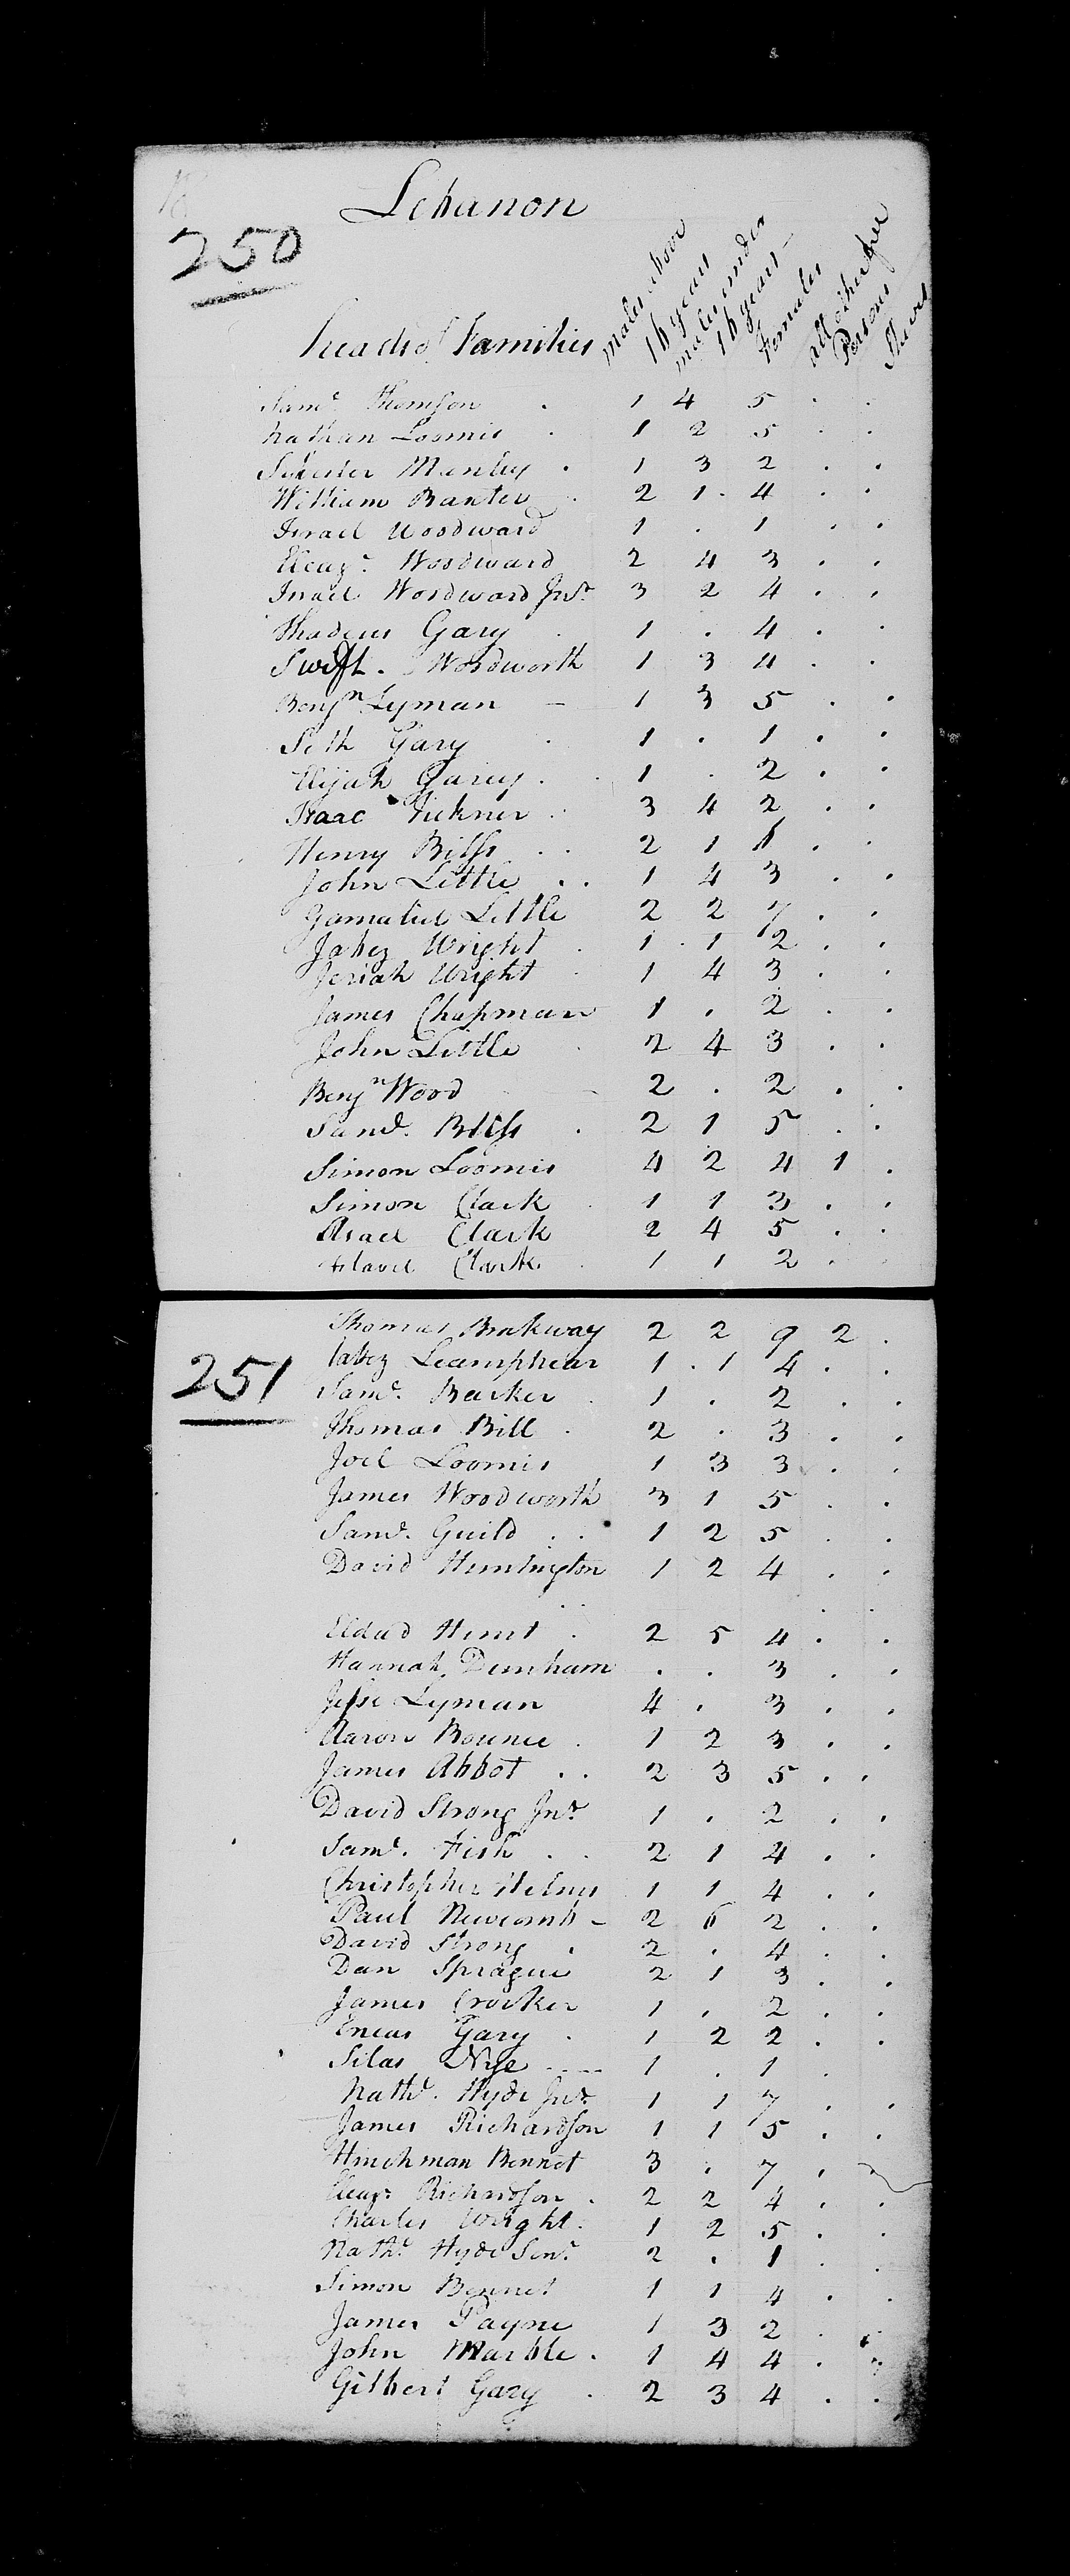 Lebanon
250
heads of Families males above 16 years males under 16 years Females all other free Persons Slaves
Sam.l Thomson . 1 4 5 . .
Nathan Loomis . 1 2 5 . .
Silvester Manley . 1 3 2 . .
William Baxter . 2 1 . 4 . .
Israel Woodward 1 . 1 . .
Eleaz.r Woodward 2 4 3 . .
Israel Woodward Jnr. 3 2 4 . .
Thadeus Gary . 1 . 4 . .
Swift . Woodworth 1 3 4 . .
Benjn Lyman - 1 3 5 . .
Seth Gary . 1 . 1 . .
Elijah Garey . . 1 . 2 . .
Isaac Tickner . 3 4 2 . .
Henry Bliss . . 2 1 6 . .
John Little . . 1 4 3 . .
Gamaliel Little 2 2 7 . .
Jabez Wright . 1 . 1 2 . .
Jeriah Wright . 1 4 3 . .
James Chapman 1 . 2 . .
John Little . 2 4 3 . .
Benjn Wood - 2 . 2 . .
Saml. Bliss . 2 1 5 . .
Simon Loomis 4 2 4 1 .
Simon Clark . 1 1 3 . .
Asael Clark 2 4 5 . .
Flavel Clark . 1 1 2 . .
251
Thomas Brokway 2 2 9 2 .
Jabez Leamphear 1 . 1 4 . .
Saml. Barker . 1 . 2 . .
Thomas Bill . 2 . 3 . .
Joel Loomis 1 3 3 . .
James Woodworth 3 1 5 . .
Saml. Guild . . 1 2 5 . .
David Huntington 1 2 4 . .
Eldad Hunt . 2 5 4 . .
Hannah Dunham . . 3 . .
Jesse Lyman 4 . 3 . .
Aaron Bounee . 1 2 3 . .
James Abbot . . 2 3 5 . .
David Strong Jnr. 1 . 2 . .
Saml. Fish . . 2 1 4 . .
Christopher 1 1 4 . .
Paul Newcomb - 2 6 2 . .
David Strong . 2 . 4 . .
Dan Sprague 2 1 3 . .
James Crocker 1 . 2 . .
Eneas Gary . 1 2 2 . .
Silas Nye ---- 1 . 1 .
Nathl. Hyde Jnr. 1 1 7 . .
James Richardson 1 1 5 . .
Hinchman Bennet 3 . 7 . .
Eleazr Richardson . 2 2 4 . .
Charles Wright . 1 2 5 . .
Nathl. Hyde Senr. 2 . 1 . .
Simon Bennet 1 1 4 . .
James Payne 1 3 2 . .
John Marble . 1 4 4 . .
Gilbert Gary . 2 3 4 . .